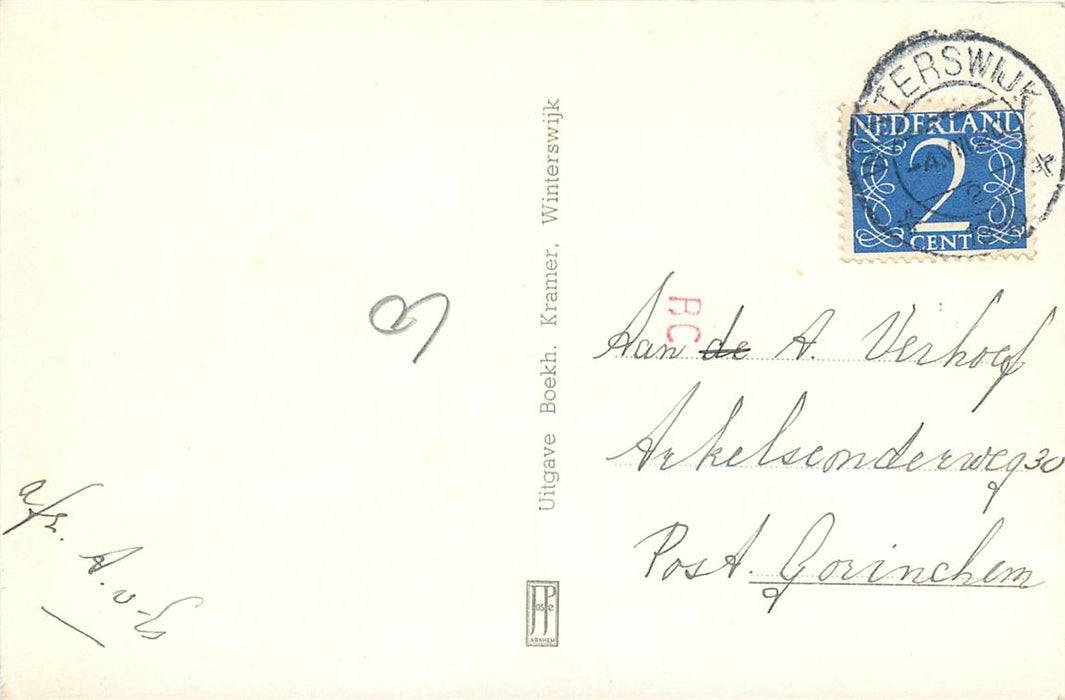 WINTERSWIJK
NEDERLAND
2
CENT
RC
Aan de A. Verhoef
Arkelsconderweg 30
Post. Gorinchem
Uitgave Boekh. Kramer, Winterswijk
JosPe
ARNHEM
afz. A. v